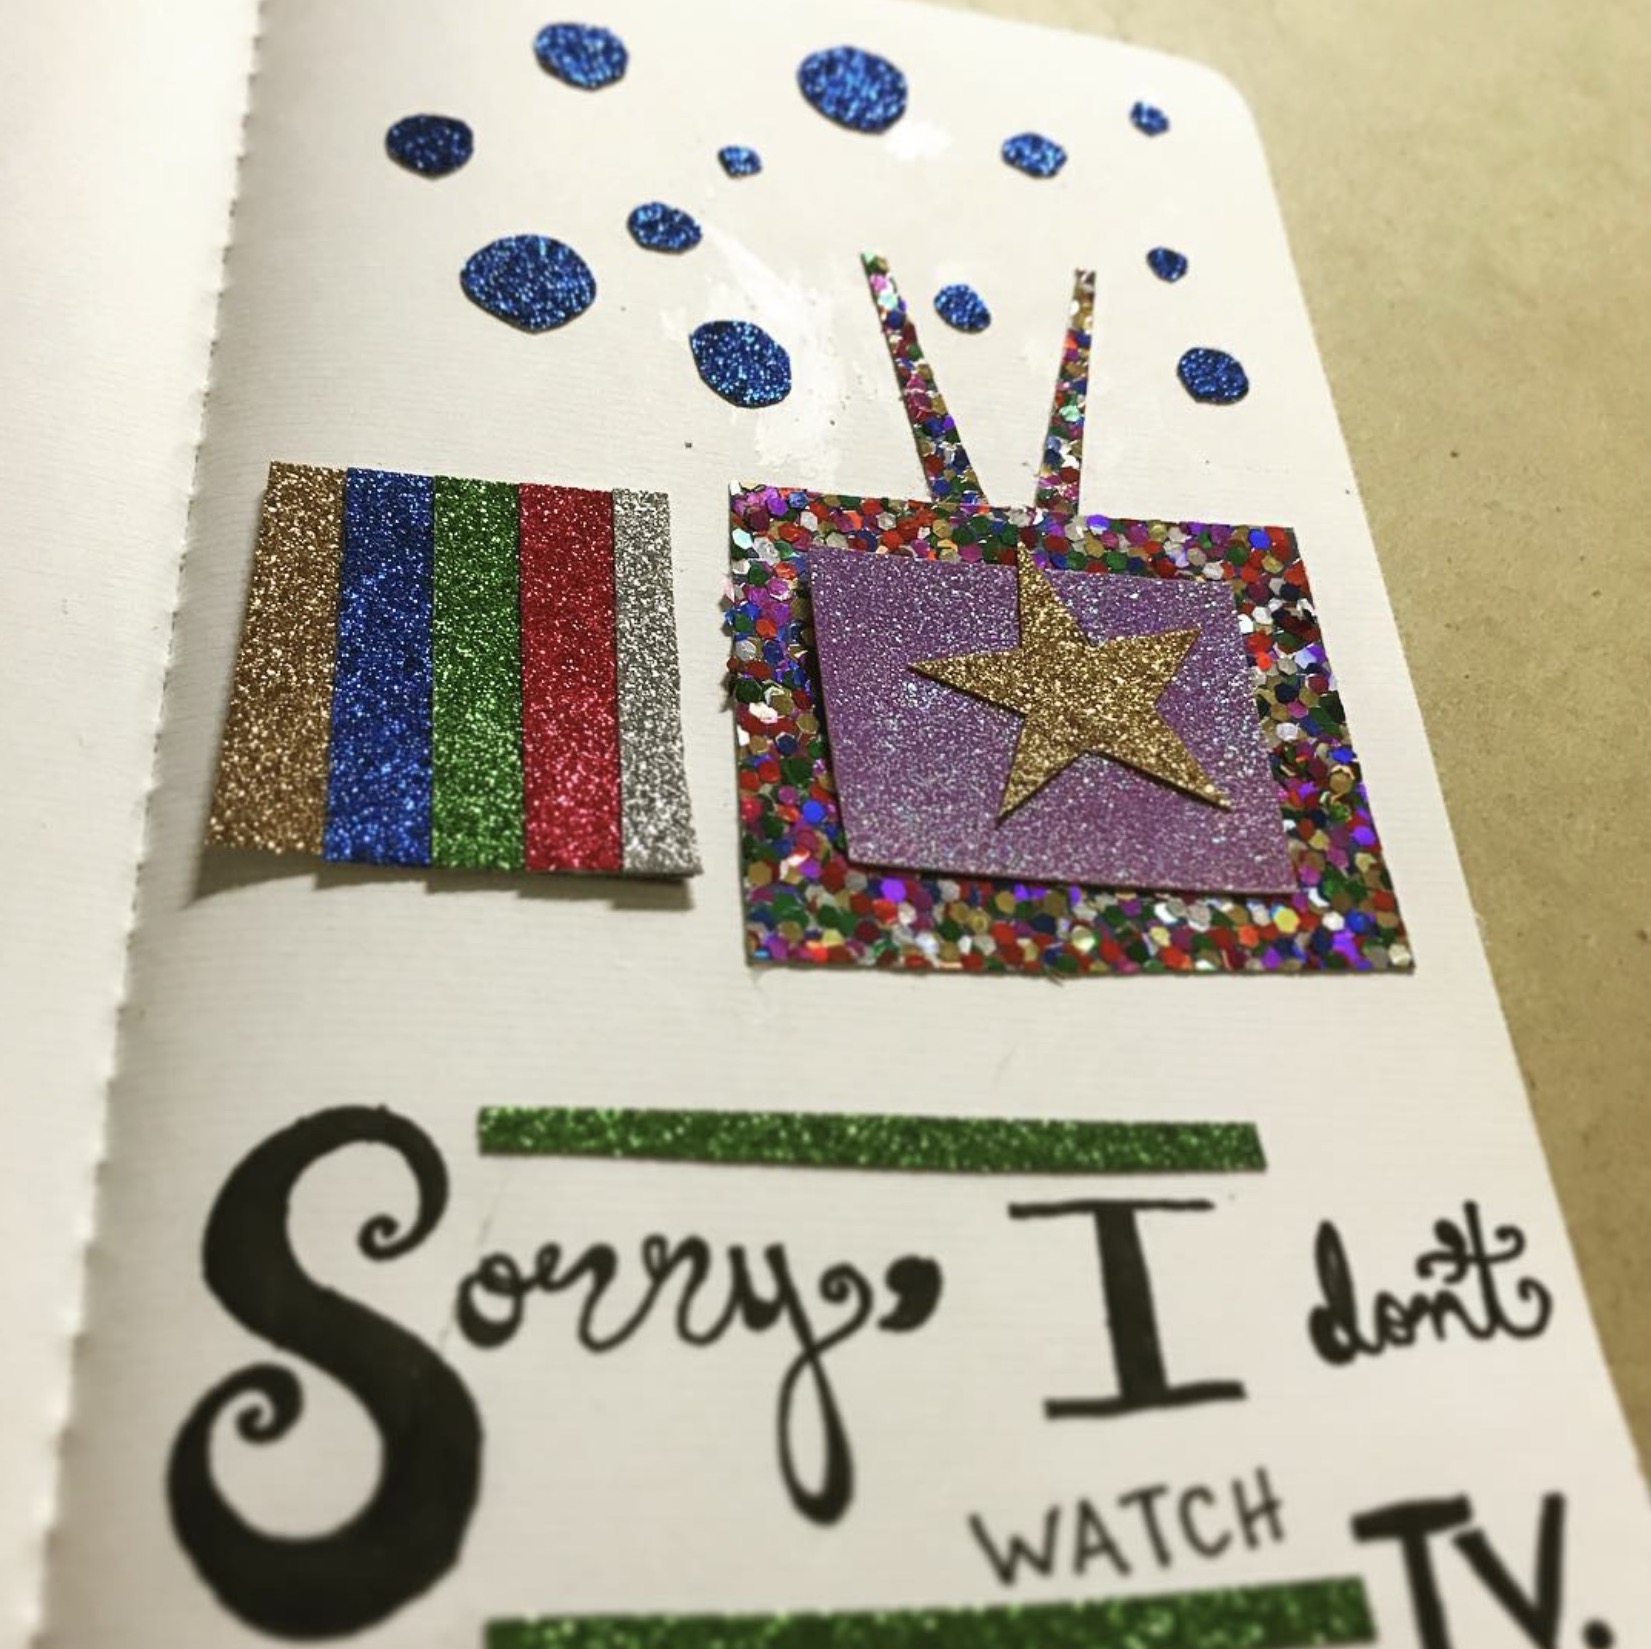 Sorry, I don't
WATCH TV.